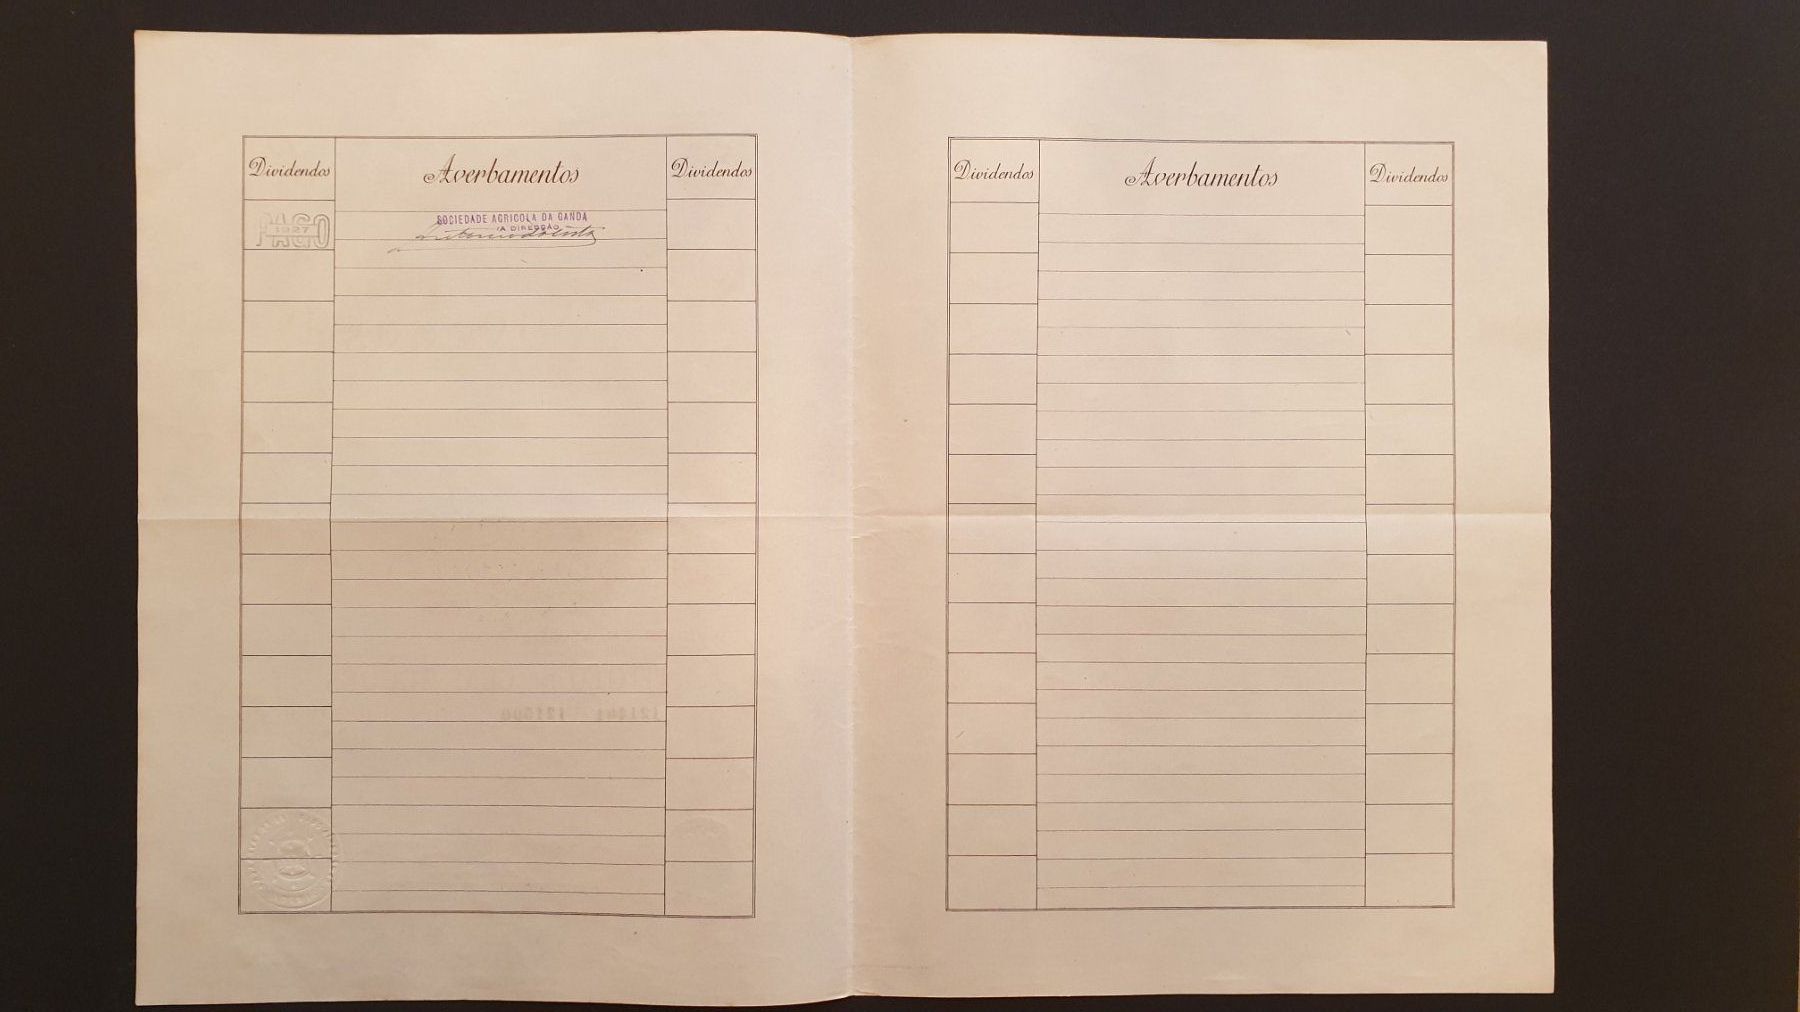 Dividendos Averbamentos Dividendos
PAGO
1927
SOCIEDADE AGRICOLA DA GANDA
A DIRECÇÃO
Dividendos Averbamentos Dividendos